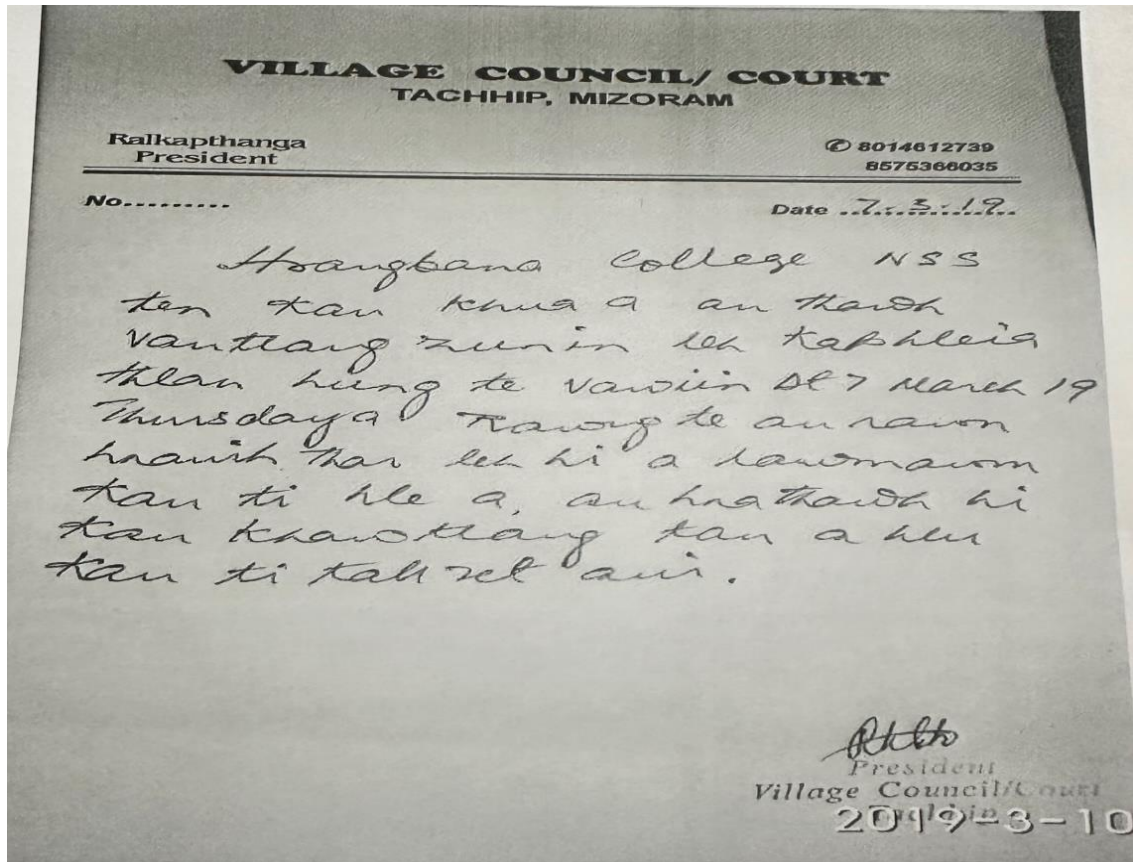 VILLAGE COUNCIL/ COURT
TACHHIP, MIZORAM
Ralkapthanga
President
✆ 8014612739
8575366035
No.........
Date 7-3-19
Hrangbana College NSS
ten kan khua a an thawh
Vantlang zunin leh Kaphleia
thlan hung te vawiin Dt 7 March 19
Thursday a Rawng te an rawn
hnawih thar leh hi a lawmawm
kan ti hle a, an hnathawh hi
kan khawtlang tan a hlu
kan ti tak zet ani.
President
Village Council/Court
Tachhip
2019-3-10